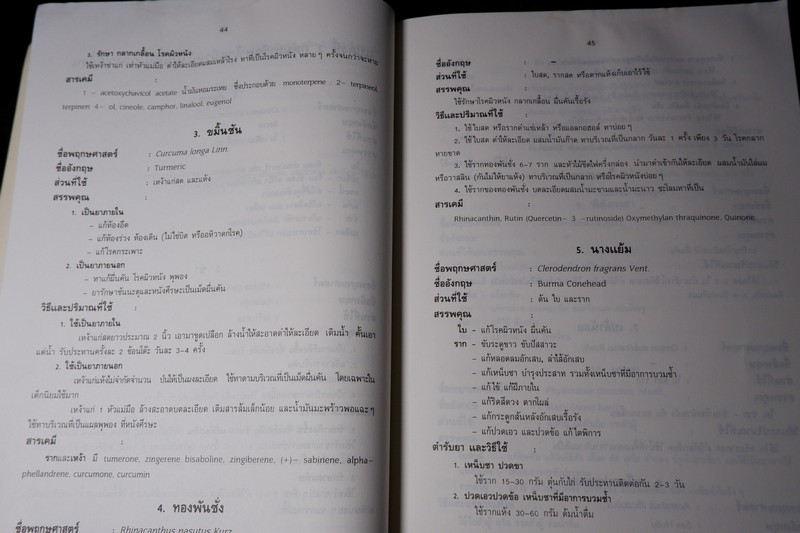 44
3. รักษา กลากเกลื้อน โรคผิวหนัง
ใช้เหง้าข่าแก่ เท่าหัวแม่มือ ตำให้ละเอียดผสมเหล้าโรง ทาที่เป็นโรคผิวหนัง หลายๆ ครั้งจนกว่าจะหาย
สารเคมี :
1 - acetoxychavicol acetate น้ำมันหอมระเหย ซึ่งประกอบด้วย monoterpene 2- terpineol,
terpinen 4- ol, cineole, camphor, linalool, eugenol
3. ขมิ้นชัน
ชื่อพฤกษศาสตร์ : Curcuma longa Linn.
ชื่ออังกฤษ : Turmeric
ส่วนที่ใช้ : เหง้าแก่สด และแห้ง
สรรพคุณ :
1. เป็นยาภายใน
- แก้ท้องอืด
- แก้ท้องร่วง ท้องเดิน (ไม่ใช่บิด หรืออหิวาตกโรค)
- แก้โรคกระเพาะ
2. เป็นยาภายนอก
- ทาแก้ผื่นคัน โรคผิวหนัง พุพอง
- ยารักษาชันนะตุและหนังศีรษะเป็นเม็ดผื่นคัน
วิธีและปริมาณที่ใช้ :
1. ใช้เป็นยาภายใน
เหง้าแก่สดยาวประมาณ 2 นิ้ว เอามาขูดเปลือก ล้างน้ำให้สะอาดตำให้ละเอียด เติมน้ำ คั้นเอา
แต่น้ำ รับประทานครั้งละ 2 ช้อนโต๊ะ วันละ 3-4 ครั้ง
2. ใช้เป็นยาภายนอก
เหง้าแก่แห้งไม่จำกัดจำนวน ป่นให้เป็นผงละเอียด ใช้ทาตามบริเวณที่เป็นเม็ดผื่นคัน โดยเฉพาะใน
เด็กนิยมใช้มาก
เหง้าแก่ 1 หัวแม่มือ ล้างสะอาดบดละเอียด เติมสารส้มเล็กน้อย และน้ำมันมะพร้าวพอแฉะๆ
ใช้ทาบริเวณที่เป็นแผลพุพอง ที่หนังศีรษะ
สารเคมี :
รากและเหง้า มี tumerone, zingerene bisaboline, zingiberene, (+)- sabinene, alpha-
phellandrene, curcumone, curcumin
4. ทองพันชั่ง
ชื่อพฤกษศาสตร์ : Rhinacanthus nasutus Kurz
45
ชื่ออังกฤษ : -
ส่วนที่ใช้ : ใบสด, รากสด หรือตากแห้งเก็บเอาไว้ใช้
สรรพคุณ :
ใช้รักษาโรคผิวหนัง กลากเกลื้อน ผื่นคันเรื้อรัง
วิธีและปริมาณที่ใช้ :
1. ใช้ใบสด หรือรากตำแช่เหล้า หรือแอลกอฮอล์ ทาบ่อยๆ
2. ใช้ใบสด ตำให้ละเอียด ผสมน้ำมันก๊าด ทาบริเวณที่เป็นกลาก วันละ 1 ครั้ง เพียง 3 วัน โรคกลาก
หายขาด
3. ใช้รากทองพันชั่ง 6-7 ราก และหัวไม้ขีดไฟครึ่งกล่อง นำมาตำเข้ากันให้ละเอียด ผสมน้ำมันใส่ผม
หรือวาสลิน (กันไม่ให้ยาแห้ง) ทาบริเวณที่เป็นกลาก หรือโรคผิวหนังบ่อยๆ
4. ใช้รากของทองพันชั่ง บดละเอียดผสมน้ำมะขามและน้ำมะนาว ชะโลมทาที่เป็น
สารเคมี :
Rhinacanthin, Rutin (Quercetin- 3 -rutinoside) Oxymethylan thraquinone, Quinone
5. นางแย้ม
ชื่อพฤกษศาสตร์ : Clerodendron fragrans Vent.
ชื่ออังกฤษ : Burma Conehead
ส่วนที่ใช้ : ต้น ใบ และราก
สรรพคุณ :
ใบ - แก้โรคผิวหนัง ผื่นคัน
ราก - ขับระดูขาว ขับปัสสาวะ
- แก้หลอดลมอักเสบ, ลำไส้อักเสบ
- แก้เหน็บชา บำรุงประสาท รวมทั้งเหน็บชาที่มีอาการบวมช้ำ
- แก้ไข้ แก้ฝีภายใน
- แก้ริดสีดวง ดากโผล่
- แก้กระดูกสันหลังอักเสบเรื้อรัง
- แก้ปวดเอว และปวดข้อ แก้ไตพิการ
ตำรับยา และวิธีใช้ :
1. เหน็บชา ปวดขา
ใช้ราก 15-30 กรัม ตุ๋นกับไก่ รับประทานติดต่อกัน 2-3 วัน
2. ปวดเอวปวดข้อ เหน็บชาที่มีอาการบวมช้ำ
ใช้รากแห้ง 30-60 กรัม ต้มน้ำดื่ม